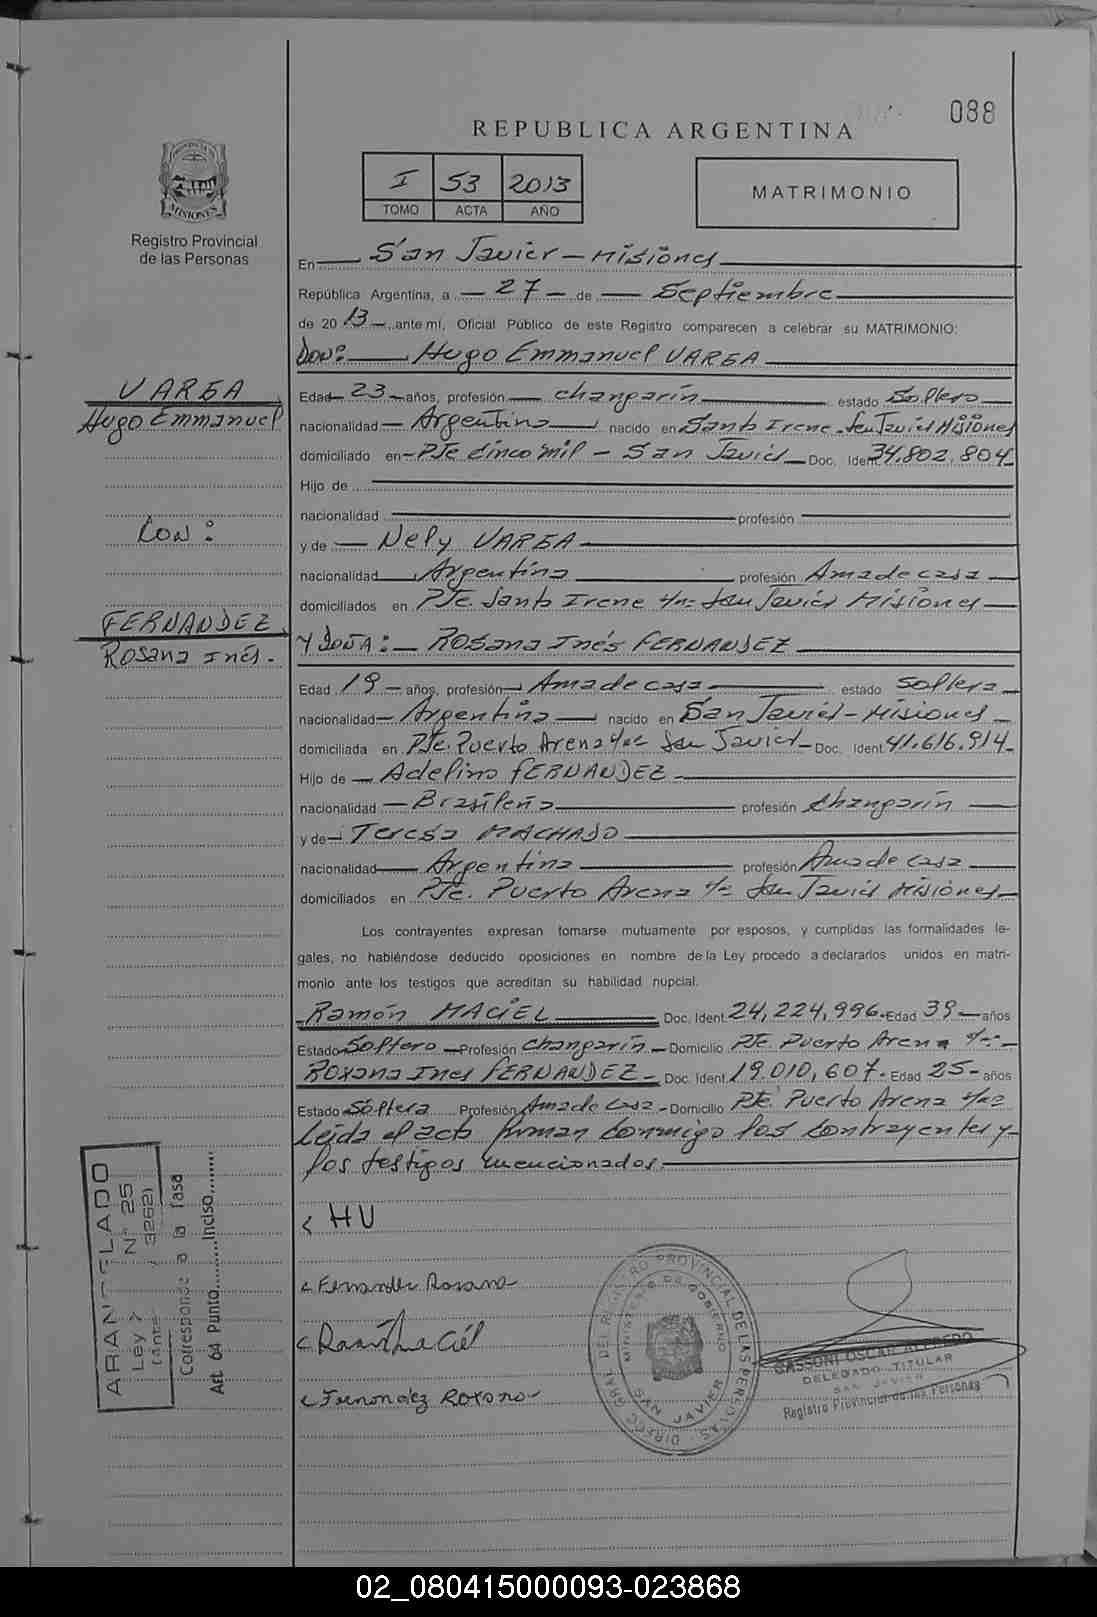 088
REPUBLICA ARGENTINA
I 53 2013
TOMO ACTA AÑO
MATRIMONIO
PROVINCIA DE
MISIONES
Registro Provincial
de las Personas
En San Javier - Misiones
República Argentina, a - 27 - de Septiembre
de 2013 ante mí, Oficial Público de este Registro comparecen a celebrar su MATRIMONIO:
DON: Hugo Emmanuel VARGA
VARGA
Hugo Emmanuel
Con:
FERNANDEZ
Rosana Inés.
Edad 23 años, profesión changarín estado Soltero
nacionalidad Argentina nacido en Santa Irene San Javier Misiones
domiciliado en Pje cinco mil - San Javier Doc. Ident. 34.802.804
Hijo de
nacionalidad profesión
y de Nely VARGA
nacionalidad Argentina profesión Ama de casa
domiciliados en Pje. Santa Irene San Javier Misiones
Y DOÑA: Rosana Inés FERNANDEZ
Edad 19 años, profesión Ama de casa estado soltera
nacionalidad Argentina nacido en San Javier - Misiones
domiciliada en Pje. Puerto Arena San Javier Doc. Ident. 41.616.914
Hijo de Adelino FERNANDEZ
nacionalidad Brasileña profesión Changarín
y de Teresa MACHADO
nacionalidad Argentina profesión Ama de casa
domiciliados en Pje. Puerto Arena San Javier Misiones
Los contrayentes expresan tomarse mutuamente por esposos, y cumplidas las formalidades le-
gales, no habiéndose deducido oposiciones en nombre de la Ley procedo a declararlos unidos en matri-
monio ante los testigos que acreditan su habilidad nupcial.
Ramón MACIEL Doc. Ident. 24.224.996 Edad 39 años
Estado Soltero Profesión Changarín Domicilio Pje. Puerto Arena
Roxana Ines FERNANDEZ Doc. Ident. 19.010.607 Edad 25 años
Estado Soltera Profesión Ama de casa Domicilio Pje. Puerto Arena
Leída el acta firman conmigo los contrayentes y
los testigos mencionados.
HU
Fernandez Rosana
Fernandez Roxana
ARANCELADO
Ley N° 25
3262)
Corresponde a la Tasa
Art. 64 Punto Inciso
DIRECC. GRAL. DEL REGISTRO PROVINCIAL DE LAS PERSONAS
MINISTERIO DE GOBIERNO
SAN JAVIER
GASSONI OSCAR ALFREDO
DELEGADO TITULAR
SAN JAVIER
Registro Provincial de las Personas
02_080415000093-023868